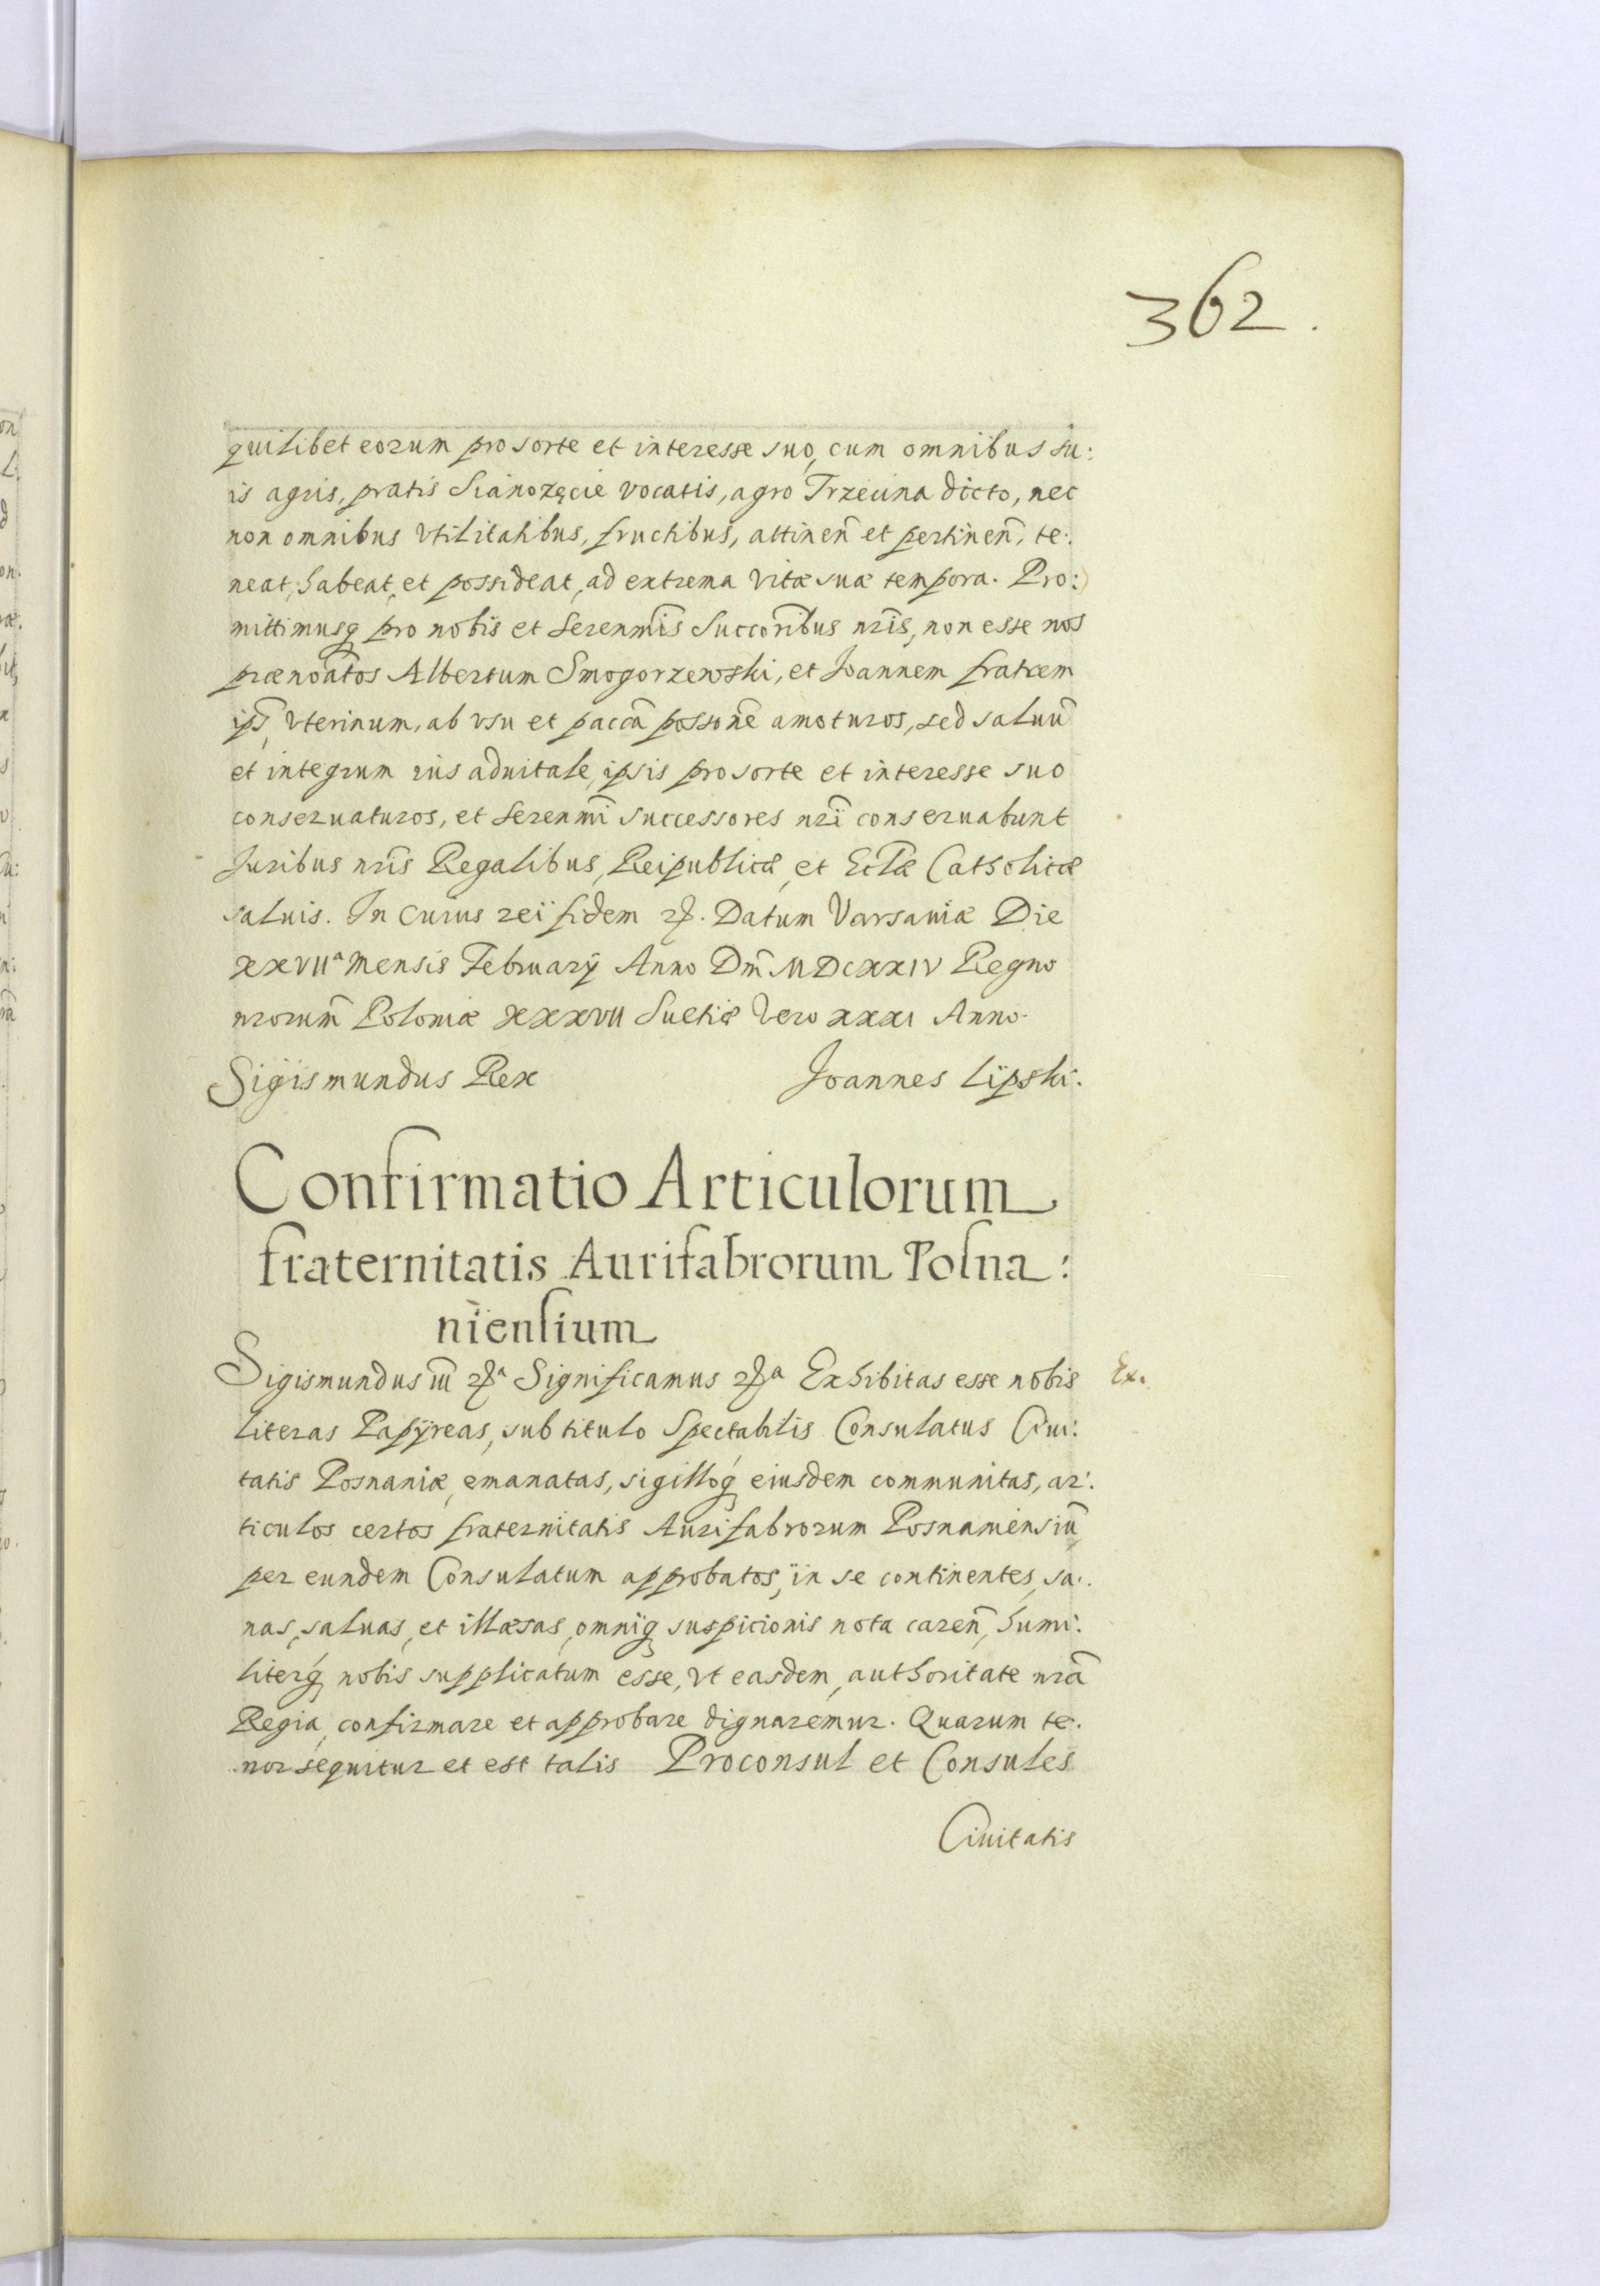 362.
quilibet eorum pro sorte et interesse suo, cum omnibus su:
is agris, pratis Sianozęcie vocatis, agro Trzecina dicto, nec
non omnibus vtilitatibus, fructibus, attinen̄ et pertinen̄, te:
neat, habeat, et possideat, ad extrema vitæ suæ tempora. Pro:
mittimusq̨ pro nobis et Serenm̄is Succor̄ibus nr̄is, non esse nos
prænoā̄tos Albertum Smogorzewski, et Joannem fratrem
ips̄, vterinum, ab vsu et paccā possonē amoturos, sed saluū
et integrum ius aduitale, ipsis pro sorte et interesse suo
conseruaturos, et Serenmī successores nrī conseruabunt
Juribus nrīs Regalibus, Reipublicæ, et Eclǣ Catholicæ
saluis. In cuius reï fidem ꝛc̄. Datum Varsauiæ Die
XXVIIᵃ Mensis Februarÿ Anno Dm̄ MDCXXIV Regno
nrorum̄ Poloniæ XXXVII Suetiæ vero XXXI Anno.
Sigismundus Rex Joannes Lipski.
Confirmatio Articulorum
fraternitatis Aurifabrorum Posna:
niensium
Sigismundus III ꝛcᵃ Significamus ꝛcᵃ Exhibitas esse nobis
Ex.
literas Papÿreas, sub titulo Spectabilis Consulatus Ciui:
tatis Posnaniæ, emanatas, sigilloq̨ eiusdem communitas, ar:
ticulos certos fraternitatis Aurifabrorum Posnaniensiū,
per eundem Consulatum approbatos, in se continentes, sa:
nas, saluas, et illæsas, omniq̨ suspicionis nota caren̄, humi:
literq̨ nobis supplicatum esse, vt easdem, authoritate nrā
Regia, confirmare et approbare dignaremur. Quarum te:
nor sequitur et est talis Proconsul et Consules
Ciuitatis